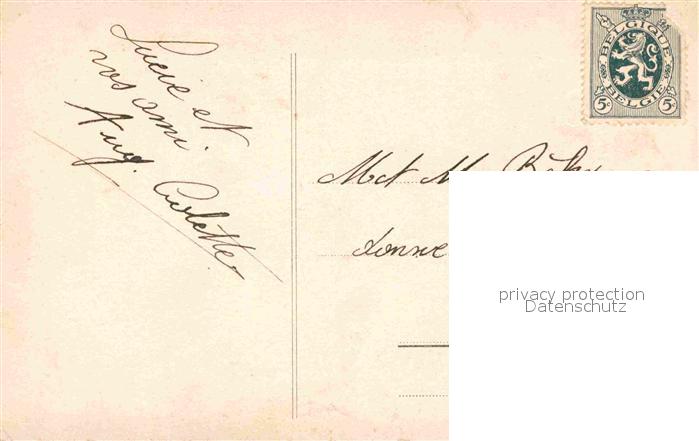 Lucie et
vos ami
Aug. Colette
BELGIQUE
5c 5c
BELGIË
Met M.
privacy protection
Datenschutz